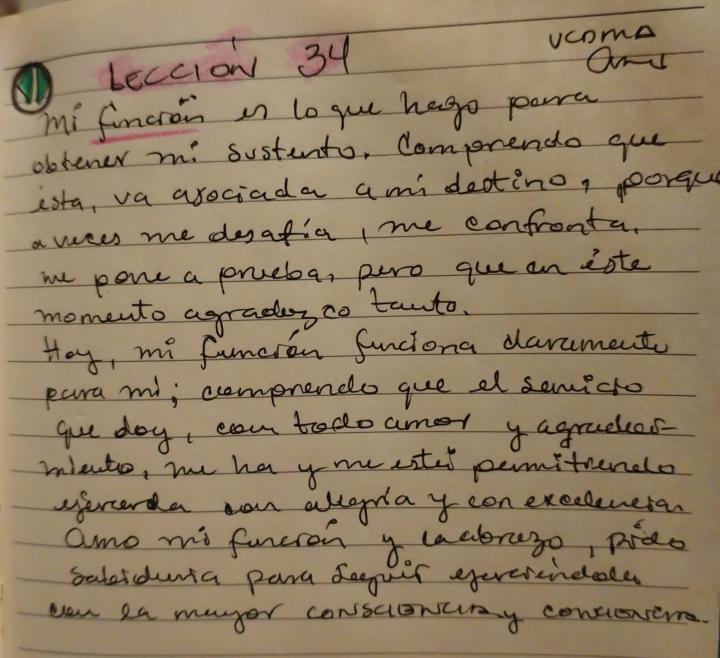 LECCIÓN 34
UCDMA
Mi función es lo que hago para
obtener mi sustento. Comprendo que
ésta, va asociada a mi destino, porque
a veces me desafía, me confronta,
me pone a prueba, pero que en éste
momento agradezco tanto.
Hoy, mi función funciona claramente
para mí; comprendo que el servicio
que doy, con todo amor y agradeci-
miento, me ha y me está permitiendo
ejercerla con alegría y con excelencia.
Amo mi función y la abrazo, pido
sabiduría para seguir ejerciéndola
con la mayor CONSCIENCIA y CONCIENCIA.